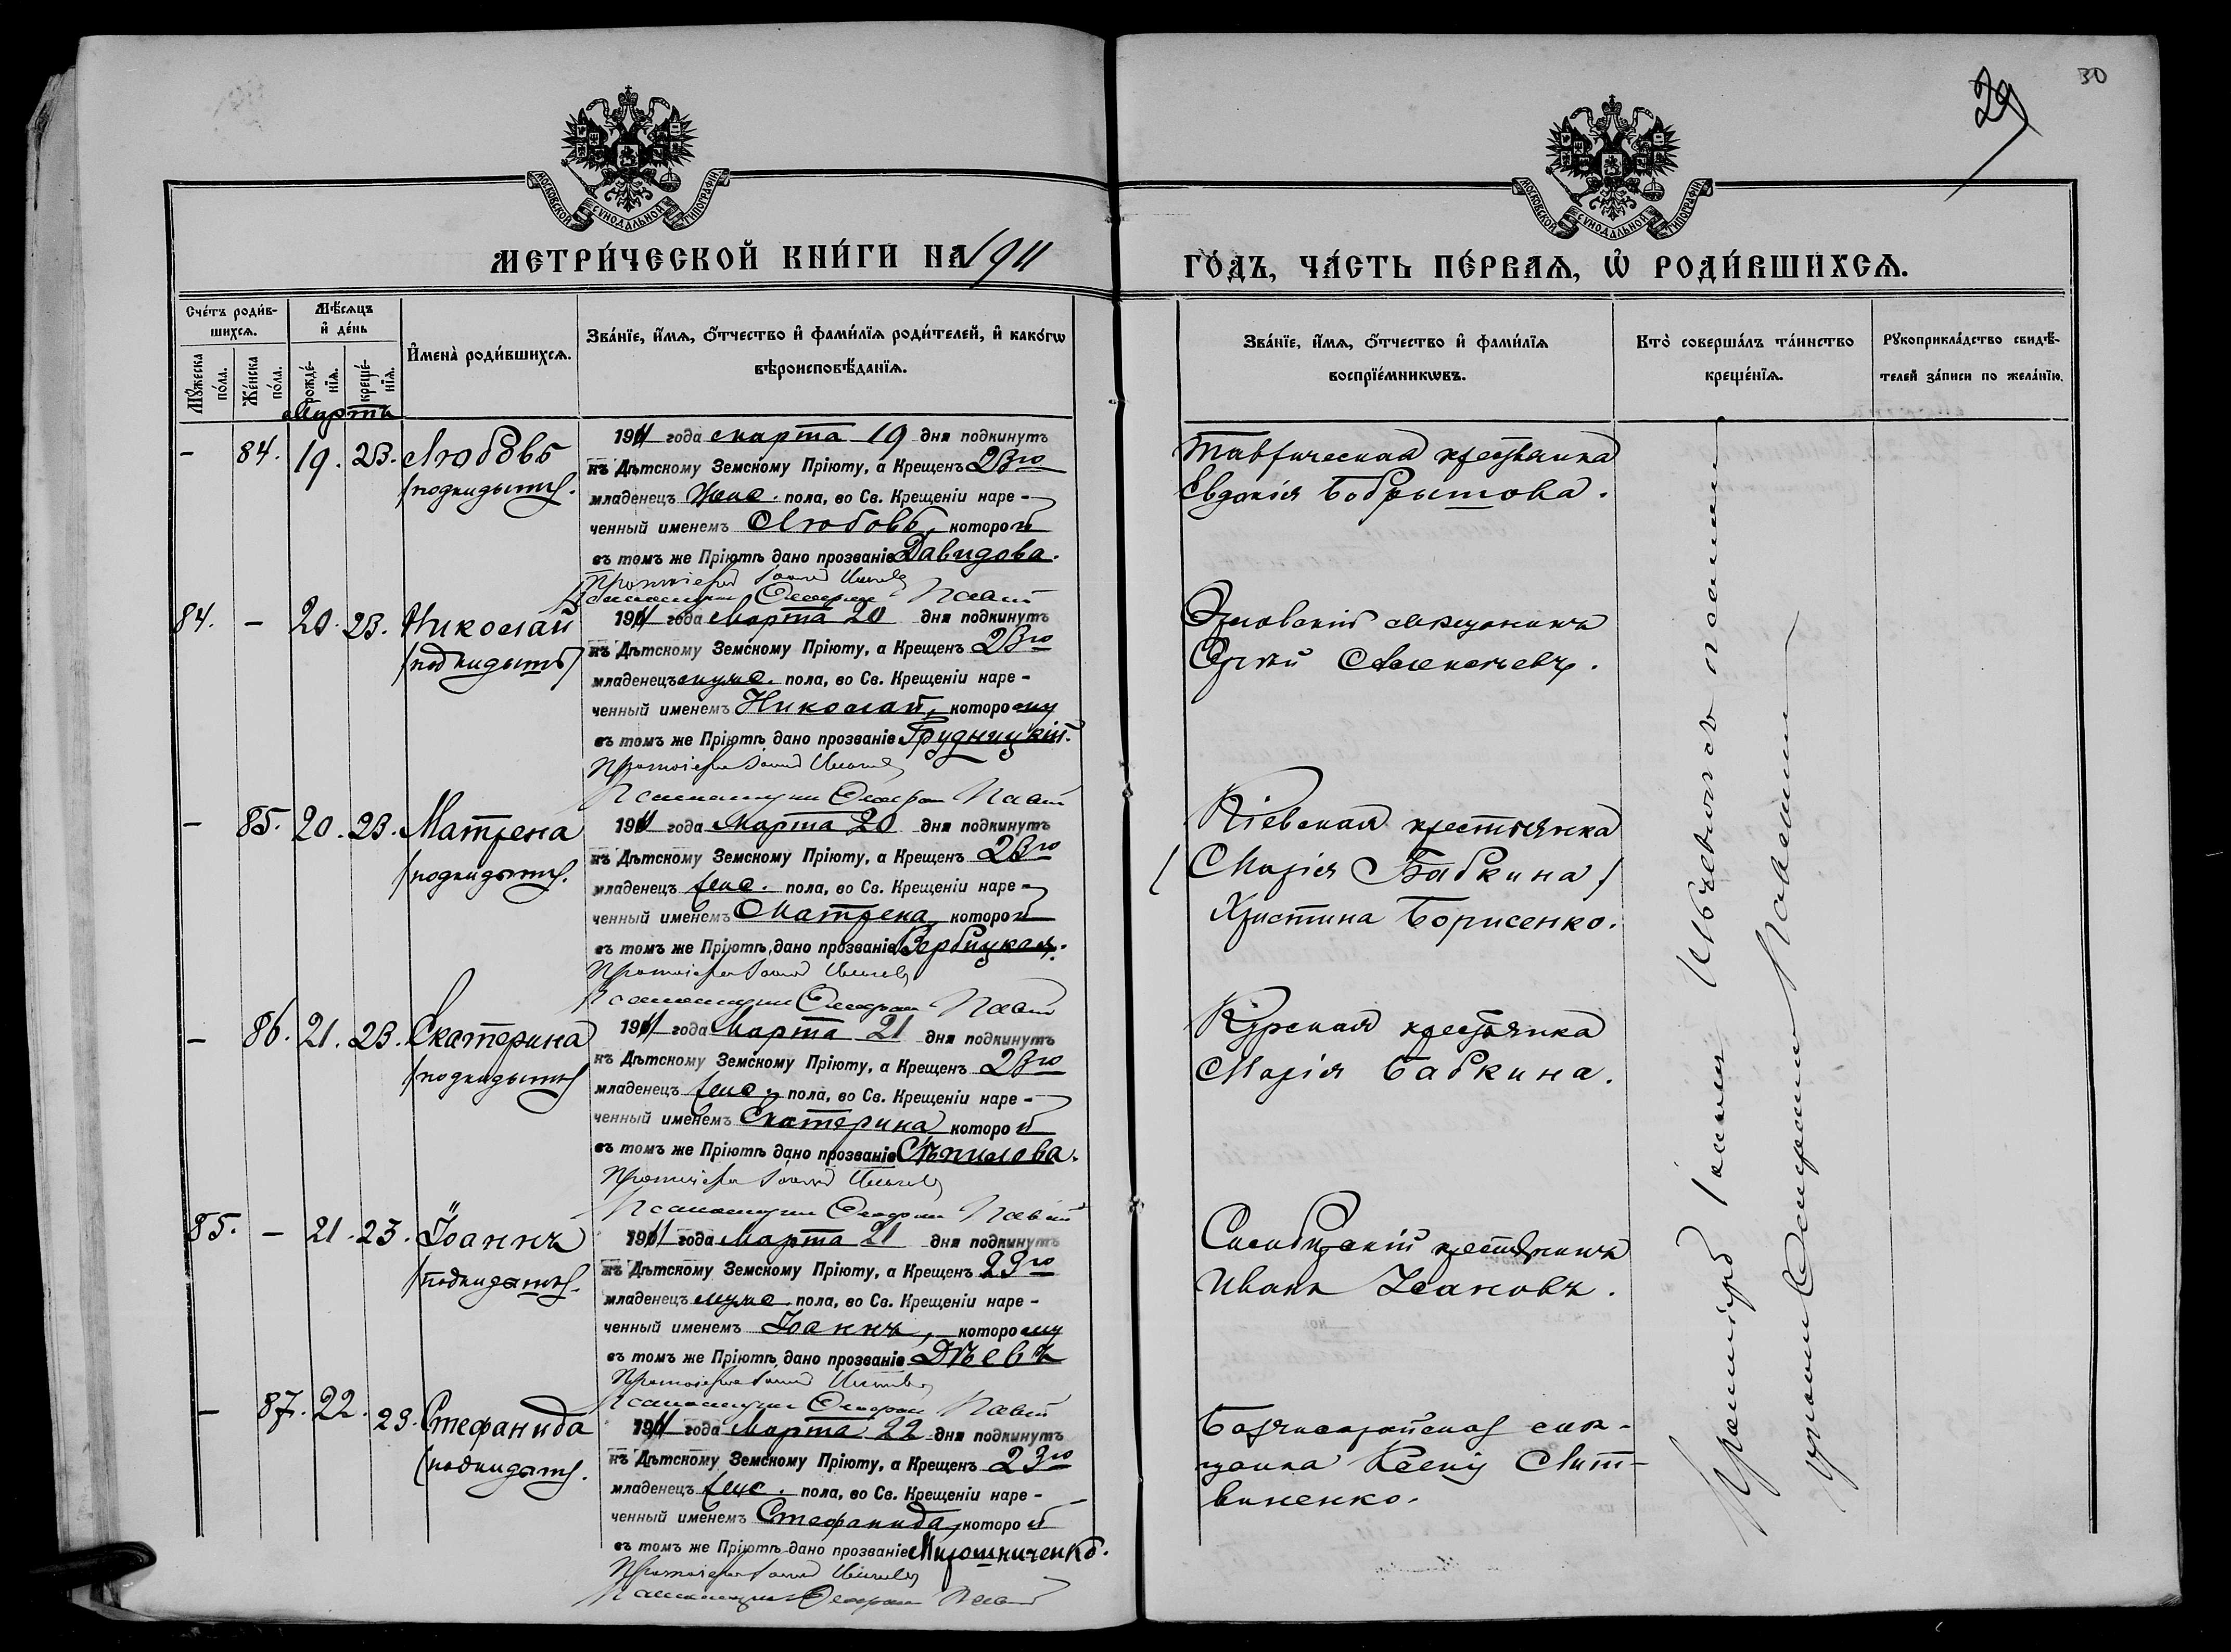 30
29
МОСКОВСКОЙ СѴНОДАЛЬНОЙ ТИПОГРАФІИ
МОСКОВСКОЙ СѴНОДАЛЬНОЙ ТИПОГРАФІИ
МЕТРИ́ЧЕСКОЙ КНИ́ГИ НА 1911
ГО́ДЪ, ЧА́СТЬ ПЕ́РВАѦ, Ѡ҆ РОДИ́ВШИХСѦ.
Сче́тъ роди́в-
шихсѧ.
Мѣ́сѧцъ
и҆ де́нь
И҆мена̀ роди́вшихсѧ.
Зва́нїе, и҆́мѧ, ѻ҆́тчество и҆ фами́лїѧ роди́телей, и҆ како́гѡ
вѣроисповѣ́данїѧ.
Мꙋ́жеска
по́ла.
Же́нска
по́ла.
рожде́-
нїѧ.
креще́-
нїѧ.
Зва́нїе, и҆́мѧ, ѻ҆́тчество и҆ фами́лїѧ
воспрїе́мникѡвъ.
Кто̀ соверша́лъ та́инство
креще́нїѧ.
Рꙋкоприкла́дство свидѣ́-
телей за́писи по жела́нїю.
Мартъ
- 84. 19. 23. Любовь
/подкидышъ/.
1911 года марта 19 дня подкинутъ
къ Дѣтскому Земскому Пріюту, а Крещенъ 23го
младенецъ жен. пола, во Св. Крещеніи наре-
ченный именемъ Любовь, которой
въ томъ же Пріютѣ дано прозваніе Давидова.
Протоіерей Іоаннъ
Псаломщикъ
Таврическая крестьянка
Евдокія Бобрышова.
84. - 20. 23. Николай
/подкидышъ/
1911 года Марта 20 дня подкинутъ
къ Дѣтскому Земскому Пріюту, а Крещенъ 23го
младенецъ муж. пола, во Св. Крещеніи наре-
ченный именемъ Николай, которому
въ томъ же Пріютѣ дано прозваніе Грудницкій.
Протоіерей Іоаннъ
Псаломщикъ
Орловскій мѣщанинъ
Сергѣй
- 85. 20. 23. Матрена
/подкидышъ/.
1911 года Марта 20 дня подкинутъ
къ Дѣтскому Земскому Пріюту, а Крещенъ 23го
младенецъ жен. пола, во Св. Крещеніи наре-
ченный именемъ Матрена, которой
въ томъ же Пріютѣ дано прозваніе Вербицкая.
Протоіерей Іоаннъ
Псаломщикъ
Кіевская крестьянка
/Марія Бабкина/
Христина Борисенко.
- 86. 21. 23. Екатерина
/подкидышъ/
1911 года Марта 21 дня подкинутъ
къ Дѣтскому Земскому Пріюту, а Крещенъ 23го
младенецъ жен. пола, во Св. Крещеніи наре-
ченный именемъ Екатерина которой
въ томъ же Пріютѣ дано прозваніе
Протоіерей Іоаннъ
Псаломщикъ
Курская крестьянка
Марія Бабкина.
85. - 21. 23. Іоаннъ
/подкидышъ/.
1911 года Марта 21 дня подкинутъ
къ Дѣтскому Земскому Пріюту, а Крещенъ 23го
младенецъ муж. пола, во Св. Крещеніи наре-
ченный именемъ Іоаннъ, которому
въ томъ же Пріютѣ дано прозваніе Дѣевъ
Протоіерей Іоаннъ
Псаломщикъ
Симбирскій крестьянинъ
Иванъ
- 87. 22. 23. Стефанида
/подкидышъ/.
1911 года Марта 22 дня подкинутъ
къ Дѣтскому Земскому Пріюту, а Крещенъ 23го
младенецъ жен. пола, во Св. Крещеніи наре-
ченный именемъ Стефанида, которой
въ томъ же Пріютѣ дано прозваніе Мирошниченко.
Протоіерей Іоаннъ
Псаломщикъ
Бахчисарайская мѣщ-
анка Ксенія Лит-
виненко.
Протоіерей Іоаннъ съ псаломщи-